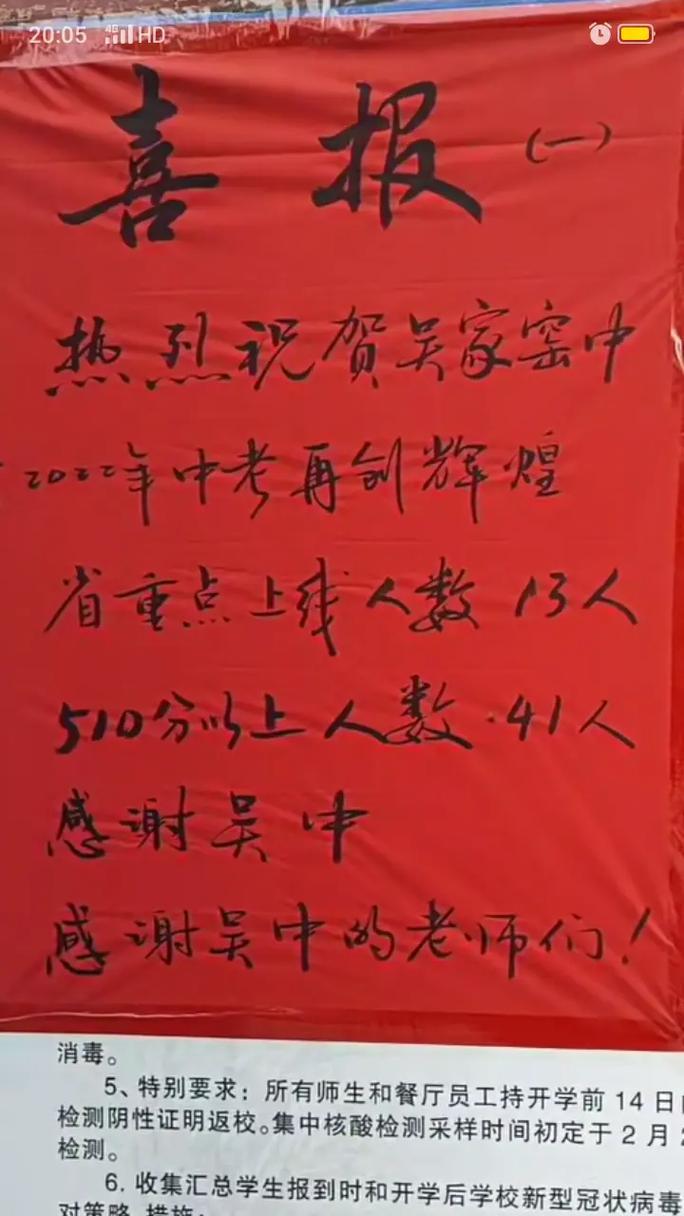 20:05 4G HD
喜报(一)
热烈祝贺吴家窑中
2022年中考再创辉煌
省重点上线人数13人
510分以上人数·41人
感谢吴中
感谢吴中的老师们!
消毒。
5、特别要求:所有师生和餐厅员工持开学前 14 日
检测阴性证明返校。集中核酸检测采样时间初定于 2 月
检测。
6. 收集汇总学生报到时和开学后学校新型冠状病毒
对策略、措施;